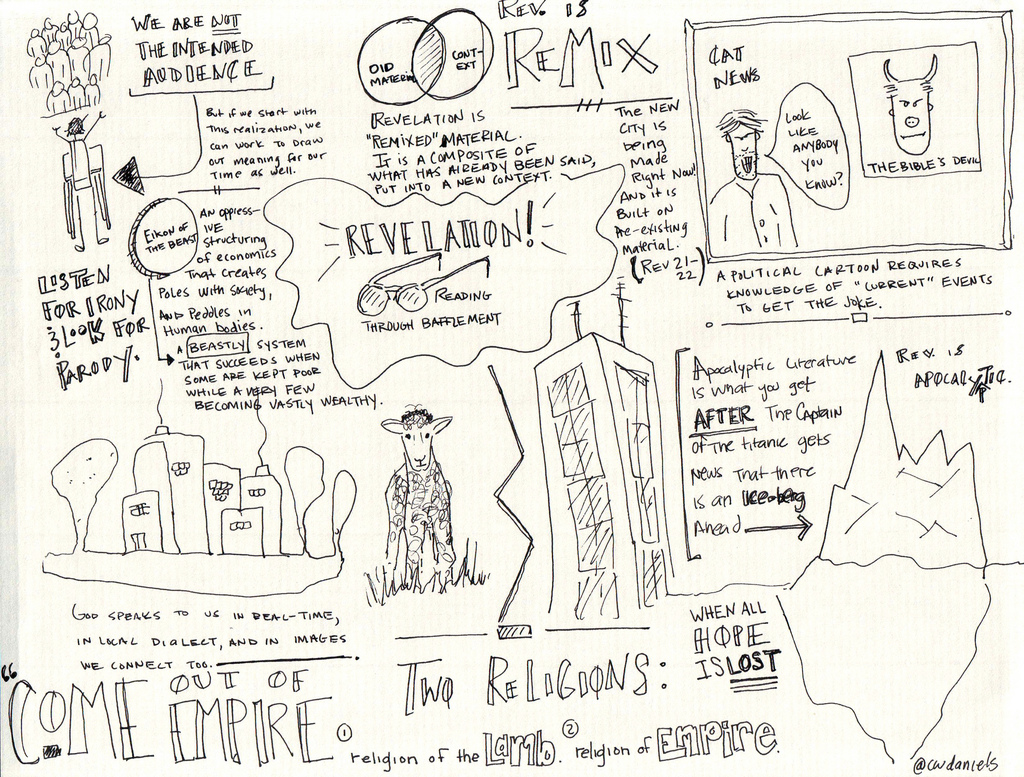 WE ARE NOT
THE INTENDED
AUDIENCE
But if we start with
This realization, we
can work to draw
out meaning for our
time as well.
Eikon of
THE BEAST
AN oppress-
IVE
structuring
of economics
That creates
Poles with Society,
AND Peddles in
Human bodies.
A BEASTLY SYSTEM
THAT SUCCEEDS WHEN
SOME ARE KEPT POOR
WHILE A VERY FEW
BECOMING VASTLY WEALTHY.
LISTEN
FOR IRONY
& LOOK FOR
PARODY.
OlD
MATERIAL
CONT-
EXT
REV. is
ReMiX
REVELATION IS
"REMIXED" MATERIAL.
IT IS A COMPOSITE OF
WHAT HAS ALREADY BEEN SAID,
PUT INTO A NEW CONTEXT.
THE NEW
CITY IS
being
MADE
Right Now!
AND it is
Built on
Pre-existing
Material.
(Rev 21-
22)
REVELATION!
READING
THROUGH BAFFLEMENT
CAT
NEWS
Look
LIKE
ANYBODY
YOU
KNOW?
THE BIBLE'S DEVIL
A POLITICAL CARTOON REQUIRES
KNOWLEDGE OF "CURRENT" EVENTS
TO GET THE JOKE.
Apocalyptic Literature
is what you get
AFTER The Captain
of The titanic gets
News That there
is an Ice-berg
Ahead
Rev. is
APOCALYPTIC.
WHEN ALL
HOPE
IS LOST
GOD SPEAKS TO US IN REAL-TIME,
IN LOCAL DIALECT, AND IN IMAGES
WE CONNECT TOO.
"COME OUT OF
EMPIRE.
TWO RELIGIONS:
① religion of the Lamb. ② religion of Empire.
@cwdaniels